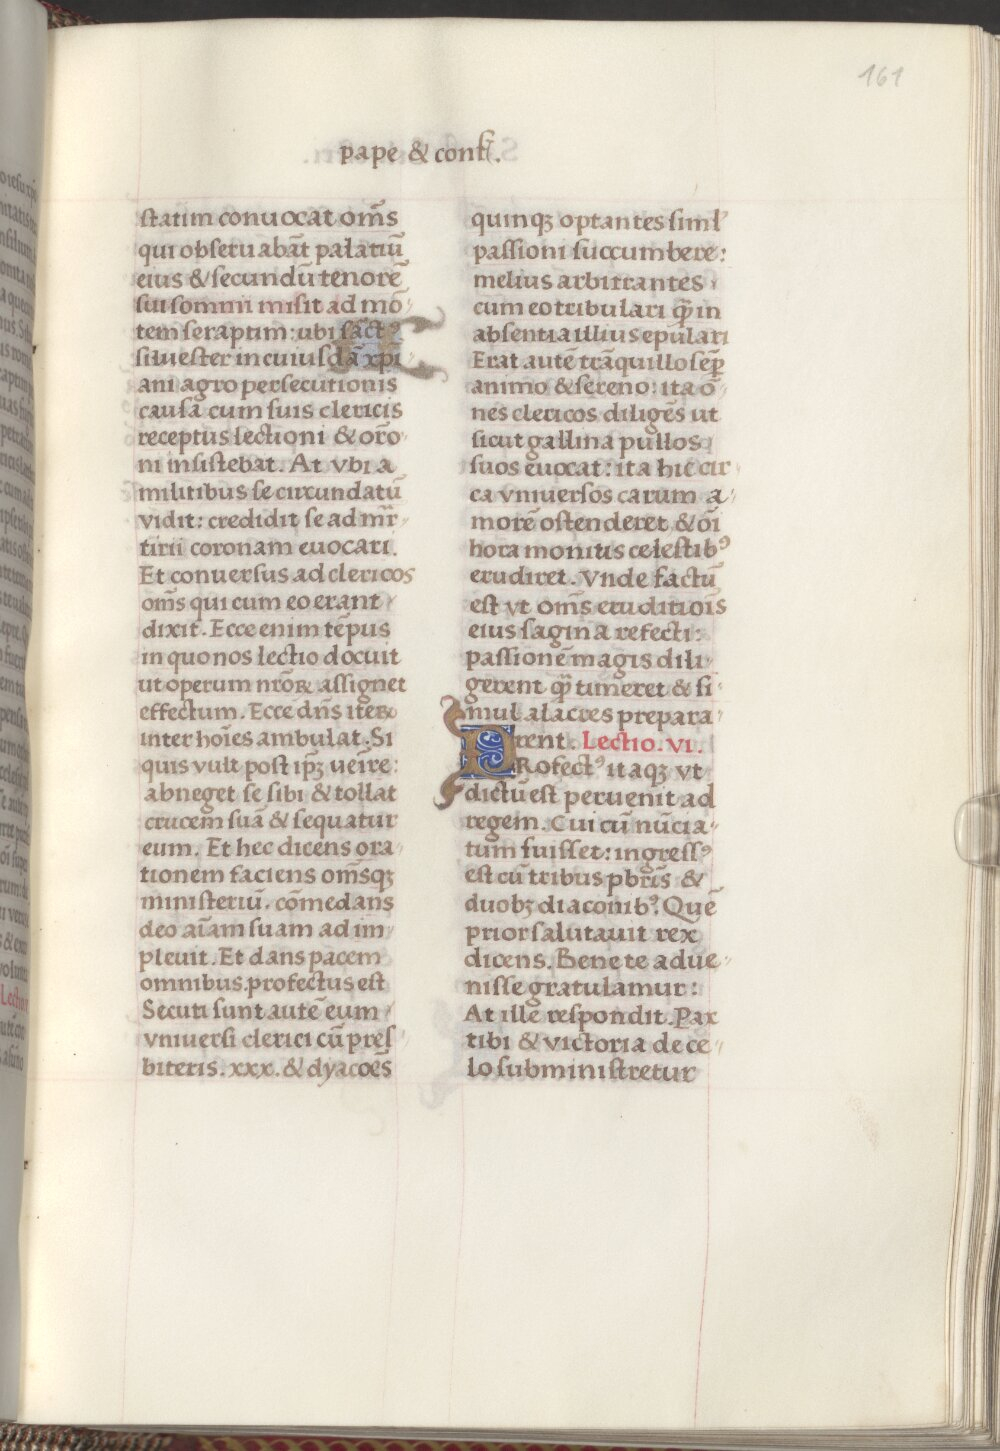 161
pape & conf̄.
statim conuocat om̄s
qui obseruabāt palatiū
eius & secundū tenorē
sui somnii misit ad mō
tem seraptim: ubi sāctꝰ
siluester in cuiusdā xp̄i
ani agro persecutionis
causa cum suis clericis
receptus lectioni & orō
ni insistebat. At vbi a
militibus se circundatū
vidit: credidit se ad mr̄
tirii coronam euocari.
Et conuersus ad clericos
om̄s qui cum eo erant
dixit. Ecce enim tēpus
in quo nos lectio docuit
ut operum nr̄oꝝ assignet
effectum. Ecce dn̄s iteꝝ
inter hoīes ambulat. Si
quis vult post ip̄ꝫ uenīre:
abneget se sibi & tollat
crucem suā & sequatur
eum. Et hec dicens ora
tionem faciens om̄sqꝫ
ministeriū. cōmedans
deo aīam suam ad im
pleuit. Et dans pacem
omnibus. profectus est
Secuti sunt autē eum
vniuersi clerici cū pres
biteris. xxx. & dyacōes
quinqꝫ optantes siml̄
passioni succumbere:
melius arbitrantes
cum eo tribulari qꝫ̄ in
absentia illius epulari
Erat autē trāquillo semꝑ
animo & sereno: ita ō
nes clericos diligēs ut
sicut gallina pullos
suos euocat: ita hic cir
ca vniuersos carum a
morē ostenderet & oī
hora monitis celestibꝰ
erudiret. Vnde factū
est vt om̄s eruditiōis
eius sagina refecti:
passionē magis dili
gerent qꝫ̄ timeret & si
mul alacres prepara
rent. Lectio. vi.
PRofectꝰ itaqꝫ vt
dictū est peruenit ad
regem. Cui cū nūcia
tum fuisset: ingressꝰ
est cū tribus pb̄ris &
duobꝫ diaconibꝰ. Quē
prior salutauit rex
dicens. Bene te adue
nisse gratulamur:
At ille respondit. Pax
tibi & victoria de ce
lo subministretur